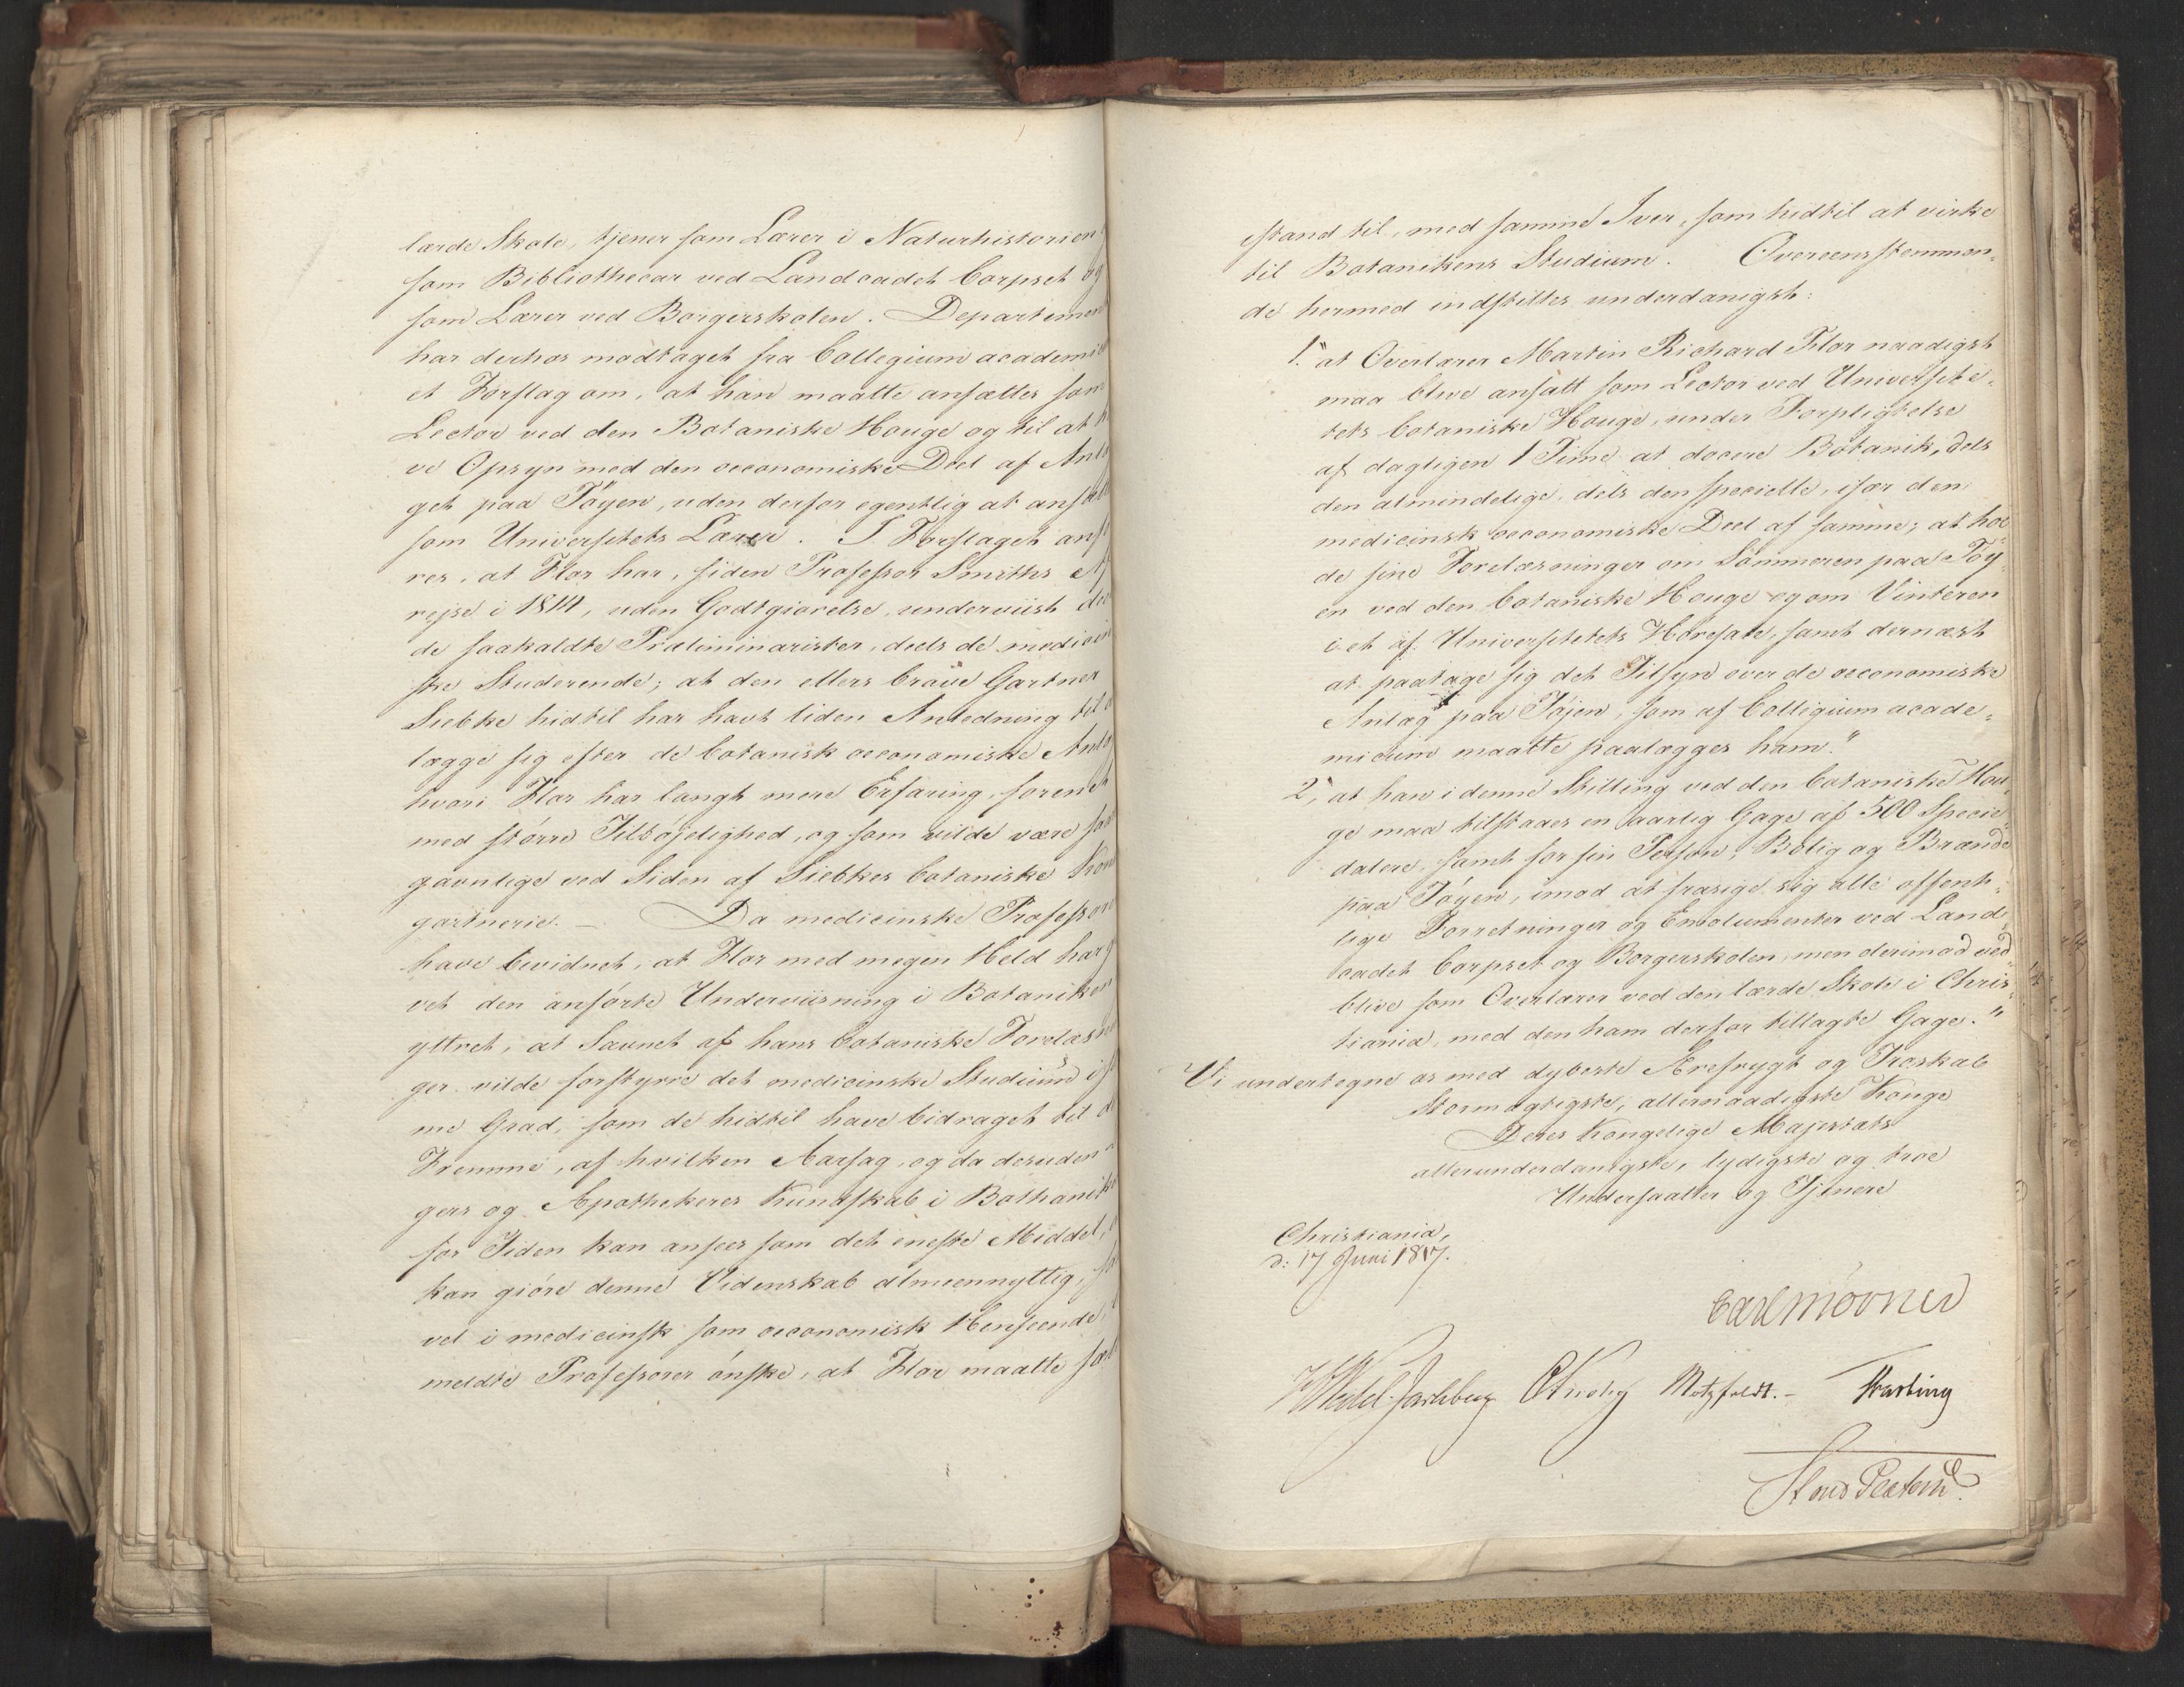 lærde Skole, tjener som Lærer i Naturhistorien
som Bibliothecar ved Landcadet Corpset og
som Lærer ved Borgerskolen. Departemen
har derhos modtaget fra Collegium academi
et Forslag om, at han maatte ansættes som
Lector ved den Botaniske Houge og til at h
ve Opsyn med den oeconomiske Deel af Anlæ
get paa Tøyen, uden derfor egentlig at ansætte
som Universitets Lærer. I Forslaget anfø
res, at Flor har, siden Professor Smiths Af
rejse i 1814, uden Godtgiørelse, underviist dee
de saakaldte Præliminarister, deels de medicin
ske Studerende; at den ellers brave Gartner
Siebke hidtil har havt liden Anledning til a
lægge sig efter de botanisk oeconomiske Anlæ
hvori Flor har langt mere Erfaring, forenet
med større Tilbøjelighed, og som vilde være saa
gavnlige ved Siden af Siebkes botaniske Kon
gartnerie. – Da medicinske Professor
have bevidnet, at Flor med megen Held har g
vet den anførte Underviisning i Botaniken
yttret, at Savnet af hans botaniske Forelæsn
ger vilde forstyrre det medicinske Studium i sa
me Grad, som de hidtil have bidraget til de
Fremme, af hvilken Aarsag, og da desuden
gers og Apothekeres Kundskab i Bothanik
for Tiden kan ansees som det eneste Middel,
kan giøre denne Videnskab almeennyttig, saa
vel i medicinsk som oeconomisk Henseende,
meldte Professorer ønske, at Flor maatte sæt
istand til, med samme Iver, som hidtil at virke
til Botanikens Studium. Overeensstemmen-
de hermed indstilles underdanigst:
1." at Overlærer Martin Richard Flor naadigst
maa blive ansatt som Lector ved Universite-
tets botaniske Houge, under Forpligtelse
af dagligen 1 Time at docere Botanik, dels
den almindelige, dels den specielle, især den
medicinsk oeconomiske Deel af samme; at hol-
de sine Forelæsninger om Sommeren paa Tøy-
en ved den botaniske Houge og om Vinteren
i et af Universitetets Høresale, samt dernæst
at paatage sig det Tilsyn over de oeconomiske
Anlæg paa Tøjen, som af Collegium acade-
micum maatte paalægges ham."
2, at han i denne Stilling ved den botaniske Hou-
ge maa tilstaaes en aarlig Gage af 500 Specie-
dalere, samt for sin Person, Bolig og Brænde
paa Tøyen, imod at frasige sig alle offent-
lige Forretninger og Emolumenter ved Land-
cadet Corpset og Borgerskolen, men derimod ved-
blive som Overlærer ved den lærde Skole i Chris-
tiania, med den ham derfor tillagte Gage."
Vi undertegne os med dybeste Ærefrygt og Troskab
Stormægtigste, allernaadigste Konge
Deres Kongelige Majestæts
allerunderdanigste, lydigste og troe
Undersaatter og Tjenere
Christiania,
d: 17 Juni 1817.
Carl Mörner
HWedel-Jarlsberg Motzfeldt. –